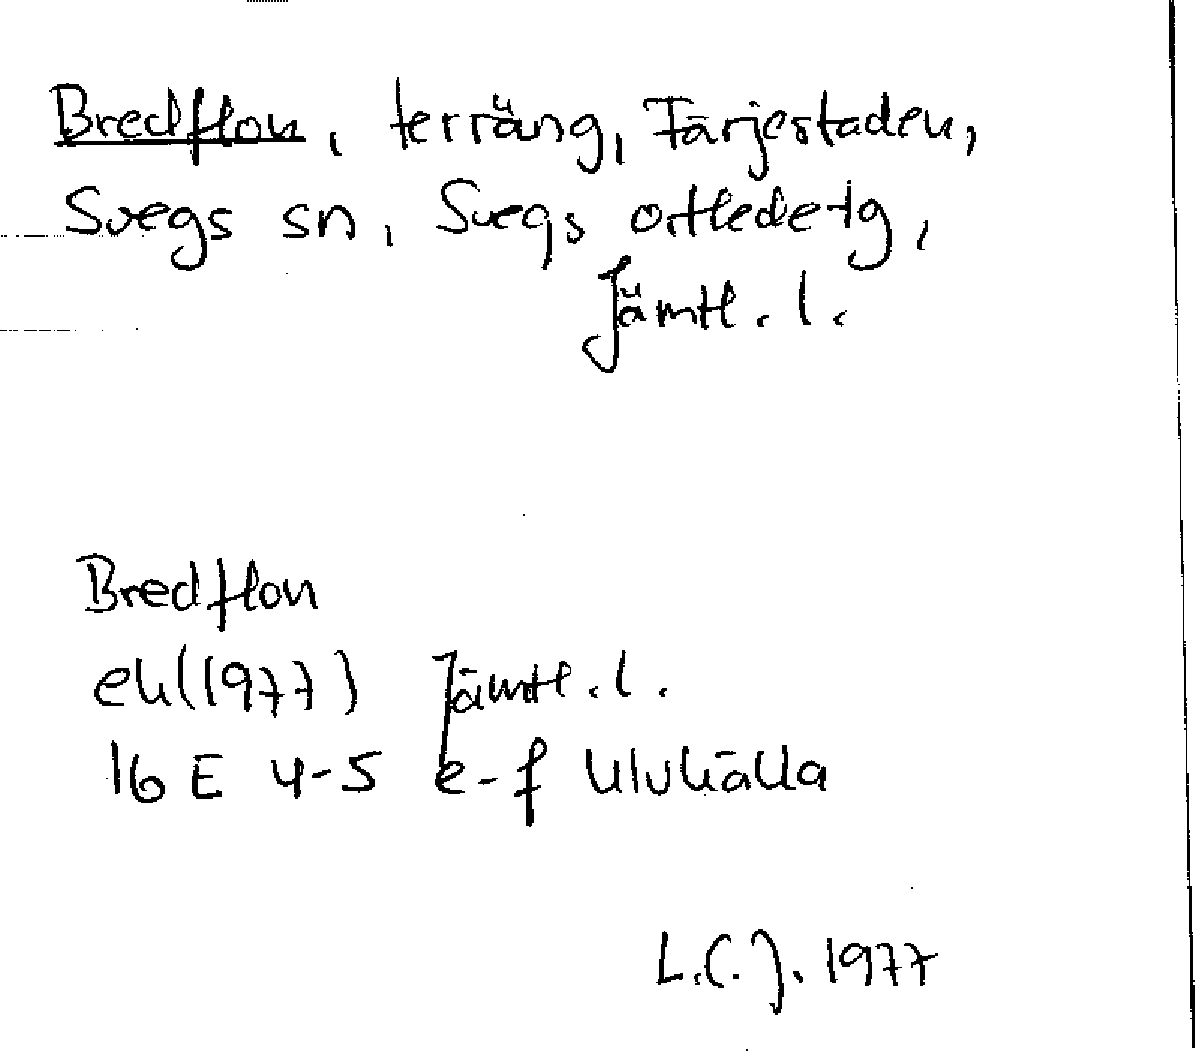 Bredflon, terräng, Färjestaden,
Svegs sn, Svegs ortledetg,
Jämtl. l.
Bredflon
ek (1977) Jämtl. l.
16 E 4-5 e-f Ulvkälla
L.C.J. 1977